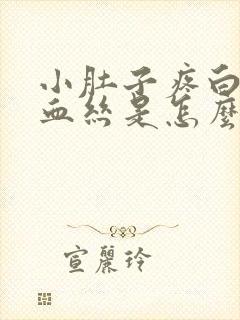 小肚子疼白
血絲是怎麼
宣麗玲